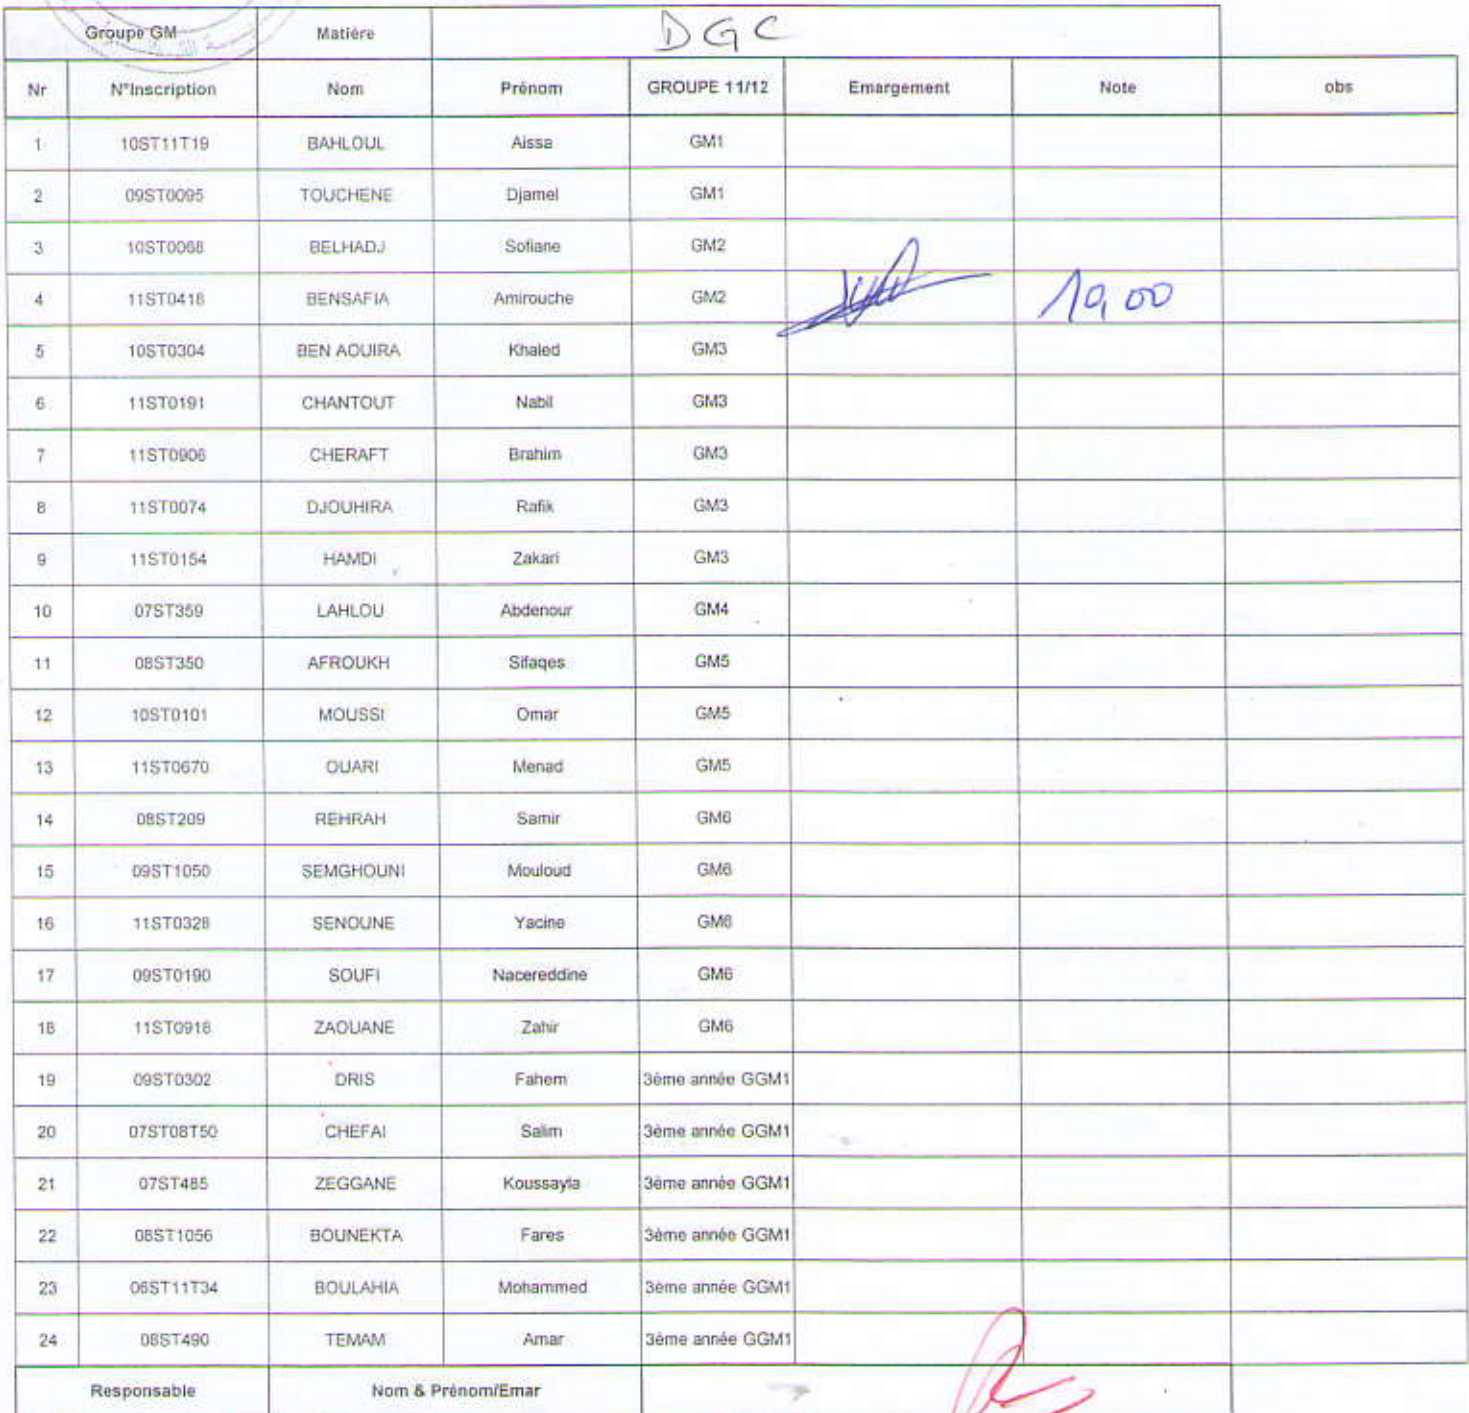 Groupe GM Matière DGC
Nr N°Inscription Nom Prénom GROUPE 11/12 Emargement Note obs
1 10ST11T19 BAHLOUL Aissa GM1
2 09ST0095 TOUCHENE Djamel GM1
3 10ST0068 BELHADJ Sofiane GM2
4 11ST0418 BENSAFIA Amirouche GM2 10,00
5 10ST0304 BEN AOUIRA Khaled GM3
6 11ST0191 CHANTOUT Nabil GM3
7 11ST0906 CHERAFT Brahim GM3
8 11ST0074 DJOUHIRA Rafik GM3
9 11ST0154 HAMDI Zakari GM3
10 07ST359 LAHLOU Abdenour GM4
11 08ST350 AFROUKH Sifaqes GM5
12 10ST0101 MOUSSI Omar GM5
13 11ST0670 OUARI Menad GM5
14 08ST209 REHRAH Samir GM6
15 09ST1050 SEMGHOUNI Mouloud GM6
16 11ST0328 SENOUNE Yacine GM6
17 09ST0190 SOUFI Nacereddine GM6
18 11ST0918 ZAOUANE Zahir GM6
19 09ST0302 DRIS Fahem 3ème année GGM1
20 07ST08T50 CHEFAI Salim 3ème année GGM1
21 07ST485 ZEGGANE Koussayla 3ème année GGM1
22 08ST1056 BOUNEKTA Fares 3ème année GGM1
23 06ST11T34 BOULAHIA Mohammed 3ème année GGM1
24 08ST490 TEMAM Amar 3ème année GGM1
Responsable Nom & Prénom/Emar